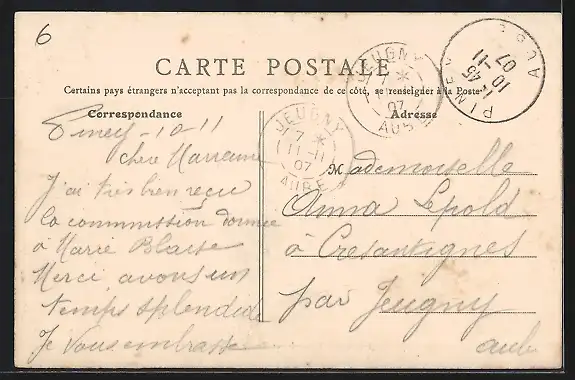 6
CARTE POSTALE
Certains pays étrangers n'acceptent pas la correspondance de ce côté, se renseigner à la Poste
Correspondance
Piney - 10 11
chère Marraine
J'ai très bien reçu
la commission donnée
à Marie Blaise
Merci, avons un
temps splendide
Je vous embrasse
Adresse
Mademoiselle
Anna Lepold
à Cresantignes
par Jeugny
aube
JEUGNY
7 *
11-11
07
AUBE
JEUGNY
*
07
AUBE
PINEY
11 45
10 -11
07
AUBE